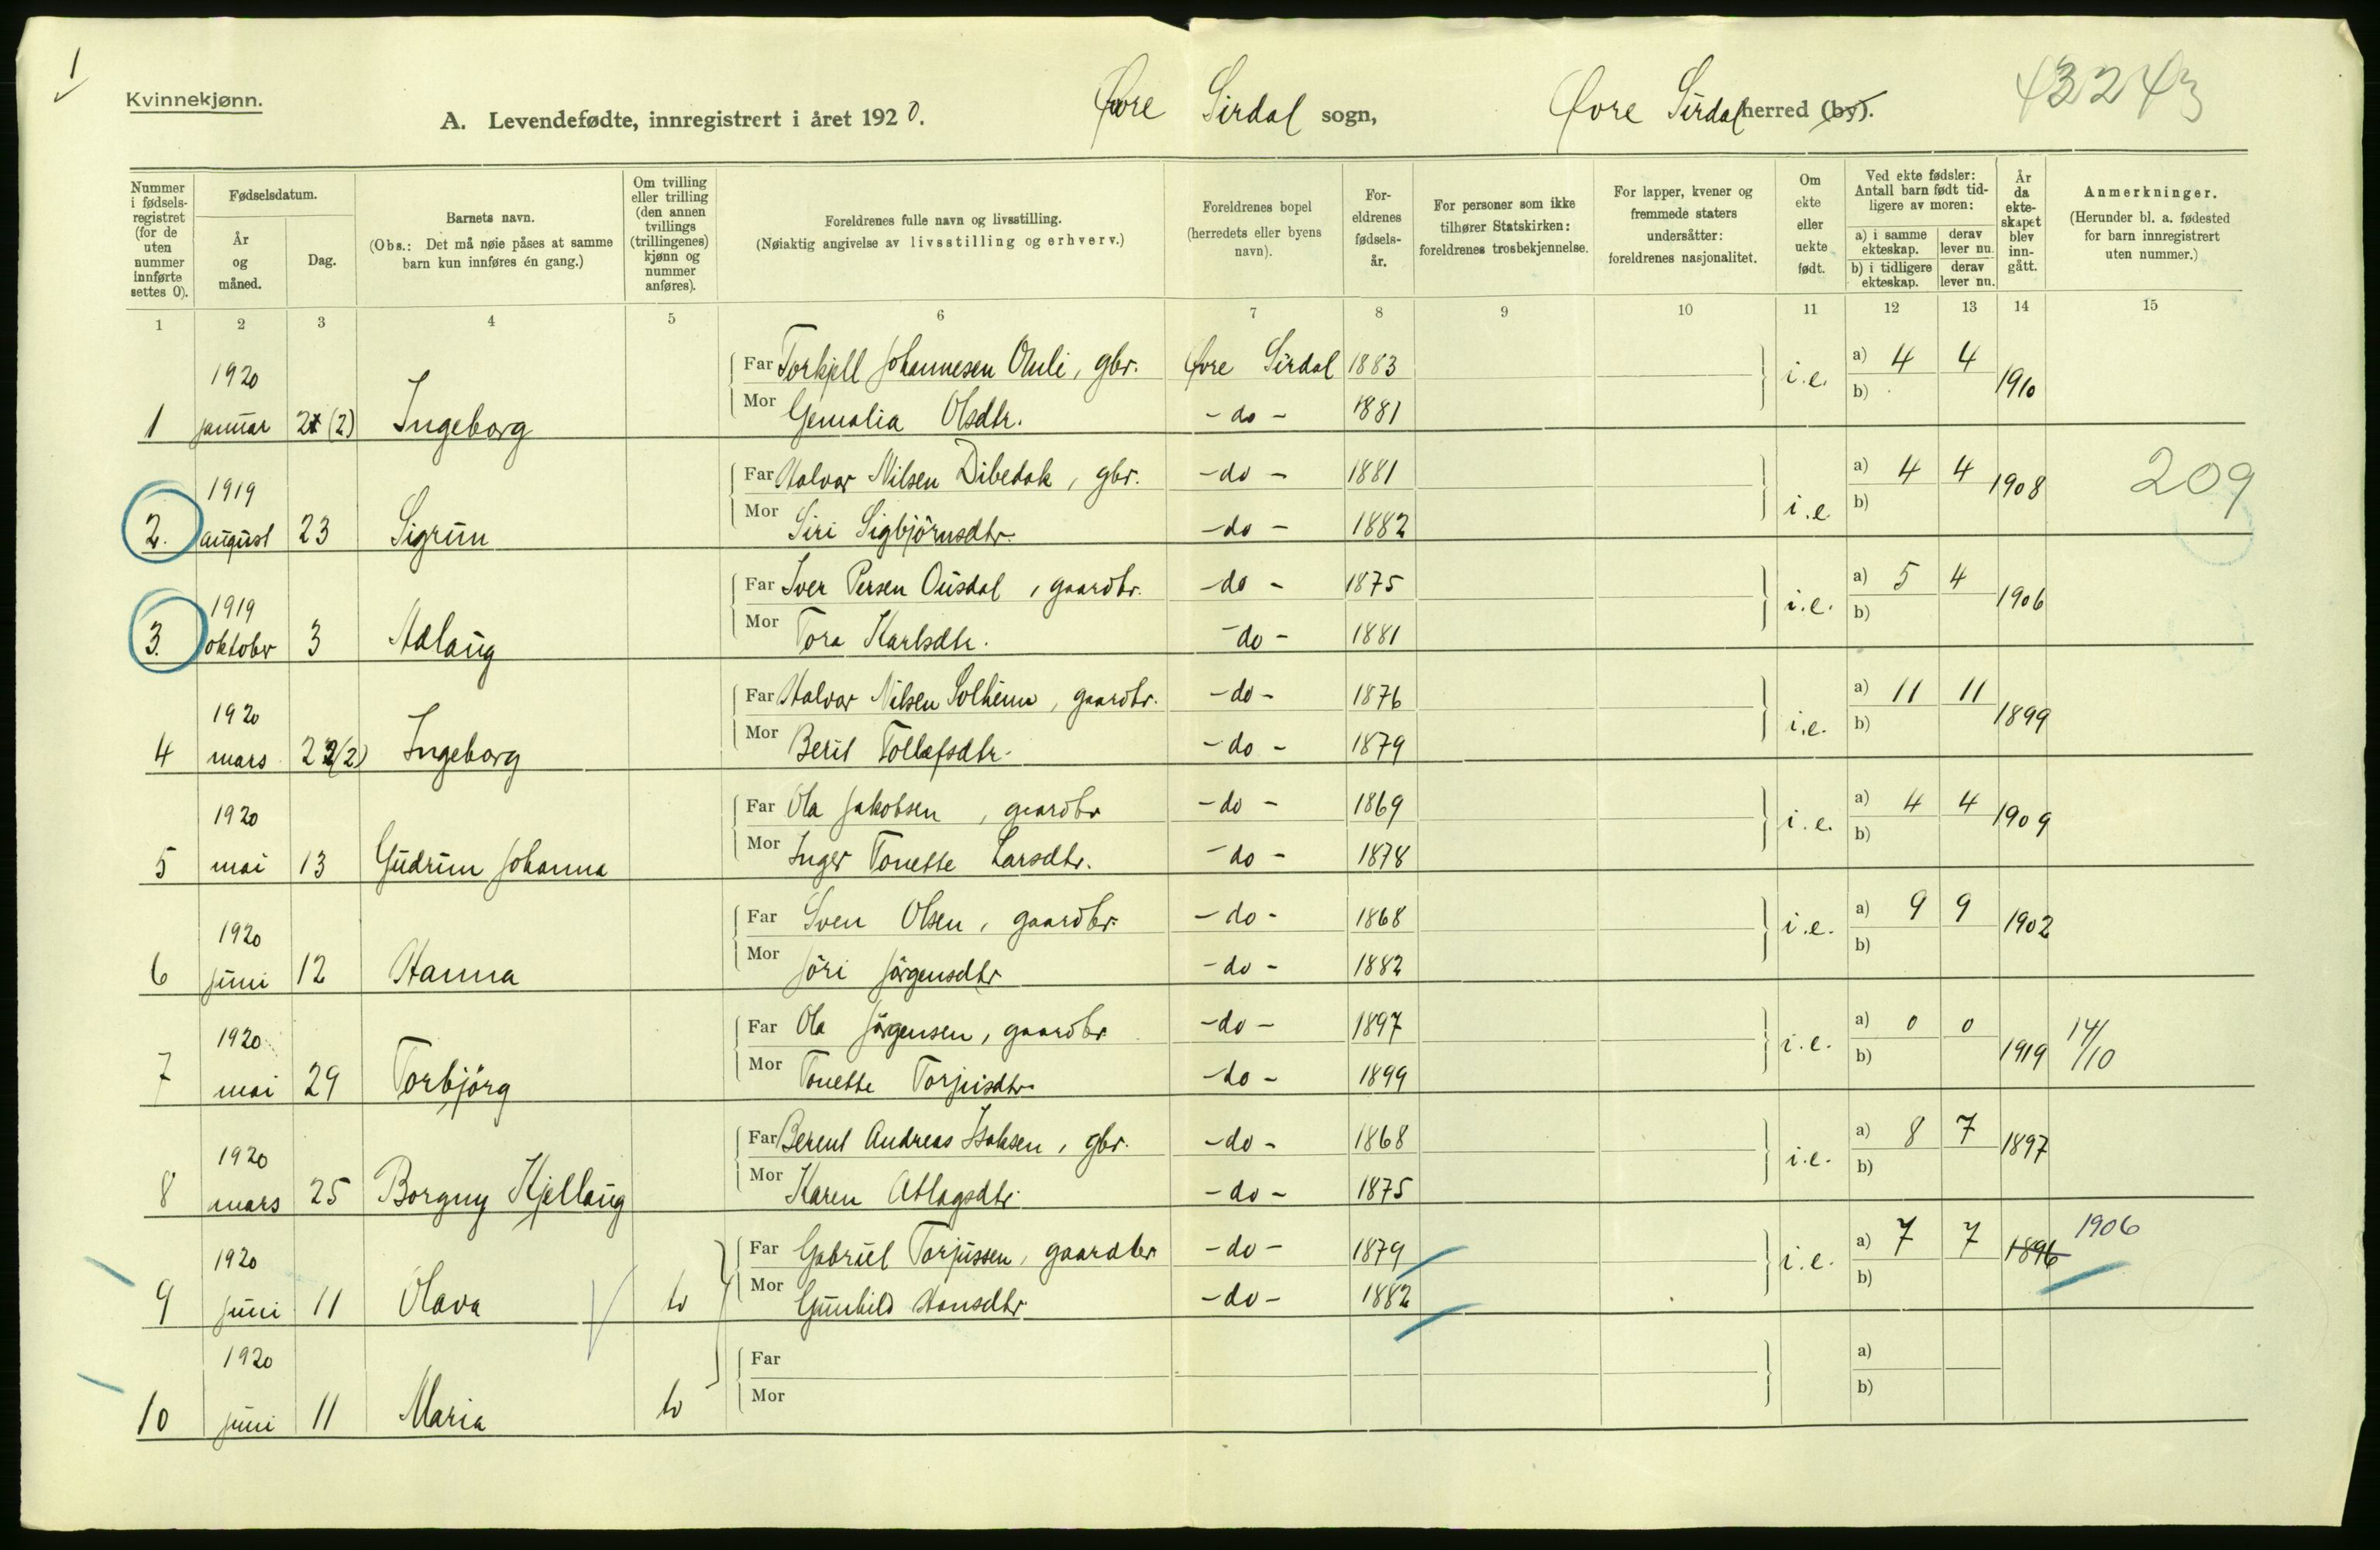 1
Kvinnekjønn.
A. Levendefødte, innregistrert i året 1920. Øvre Sirdal sogn, Øvre Sirdal herred (by). 43243
Nummer i fødsels-registret (for de uten nummer innførte settes 0).
Fødselsdatum.
År og måned.
Dag.
Barnets navn.
(Obs.: Det må nøie påses at samme barn kun innføres én gang.)
Om tvilling eller trilling (den annen tvillings (trillingenes) kjønn og nummer anføres).
Foreldrenes fulle navn og livsstilling.
(Nøiaktig angivelse av livsstilling og erhverv.)
Foreldrenes bopel (herredets eller byens navn).
For-eldrenes fødsels-år.
For personer som ikke tilhører Statskirken: foreldrenes trosbekjennelse.
For lapper, kvener og fremmede staters undersåtter: foreldrenes nasjonalitet.
Om ekte eller uekte født.
Ved ekte fødsler: Antall barn født tid-ligere av moren:
a) i samme ekteskap. derav lever nu.
b) i tidligere ekteskap. derav lever nu.
År da ekte-skapet blev inn-gått.
Anmerkninger.
(Herunder bl. a. fødested for barn innregistrert uten nummer.)
1 2 3 4 5 6 7 8 9 10 11 12 13 14 15
1920 Far Torkjell Johannesen , gbr. Øvre Sirdal 1883 i.e. a) 4 4 1910
1 januar 2 (2) Ingeborg Mor Gemalia Olsdtr. - do - 1881 b)
1919 Far Halvor Nilsen , gbr. - do - 1881 i.e. a) 4 4 1908 209
2. august 23 Sigrun Mor Siri Sigbjörnsdtr. - do - 1882 b)
1919 Far Iver Persen Ousdal , gaardbr. - do - 1875 i.e. a) 5 4 1906
3. oktober 3 Adlaug Mor Tora Karlsdtr. - do - 1881 b)
1920 Far Halvor Nilsen Solheim , gaardbr. - do - 1876 i.e. a) 11 11 1899
4 mars 22 (2) Ingeborg Mor Berit Tollefsdtr. - do - 1879 b)
1920 Far Ola Jakobsen , gaardbr - do - 1869 i.e. a) 4 4 1909
5 mai 13 Gudrun Johanna Mor Inger Tonette Larsdtr. - do - 1878 b)
1920 Far Sven Olsen , gaardbr. - do - 1868 i.e. a) 9 9 1902
6 juni 12 Hanna Mor Jöri Jörgensdtr - do - 1882 b)
1920 Far Ola Jörgensen , gaardbr. - do - 1897 i.e. a) 0 0 1919 14/10
7 mai 29 Torbjörg Mor Tonette Torjusdtr. - do - 1899 b)
1920 Far Berent Andreas Isaksen , gbr. - do - 1868 i.e. a) 8 7 1897
8 mars 25 Borgny Kjellaug Mor Karen Atlagsdtr. - do - 1875 b)
1920 Far Gabriel Torjussen , gaardbr - do - 1879 i.e. a) 7 7 1896 1906
9 juni 11 Olava to Mor Gunhild Hansdtr. - do - 1882 b)
1920 Far a)
10 juni 11 Maria to Mor b)